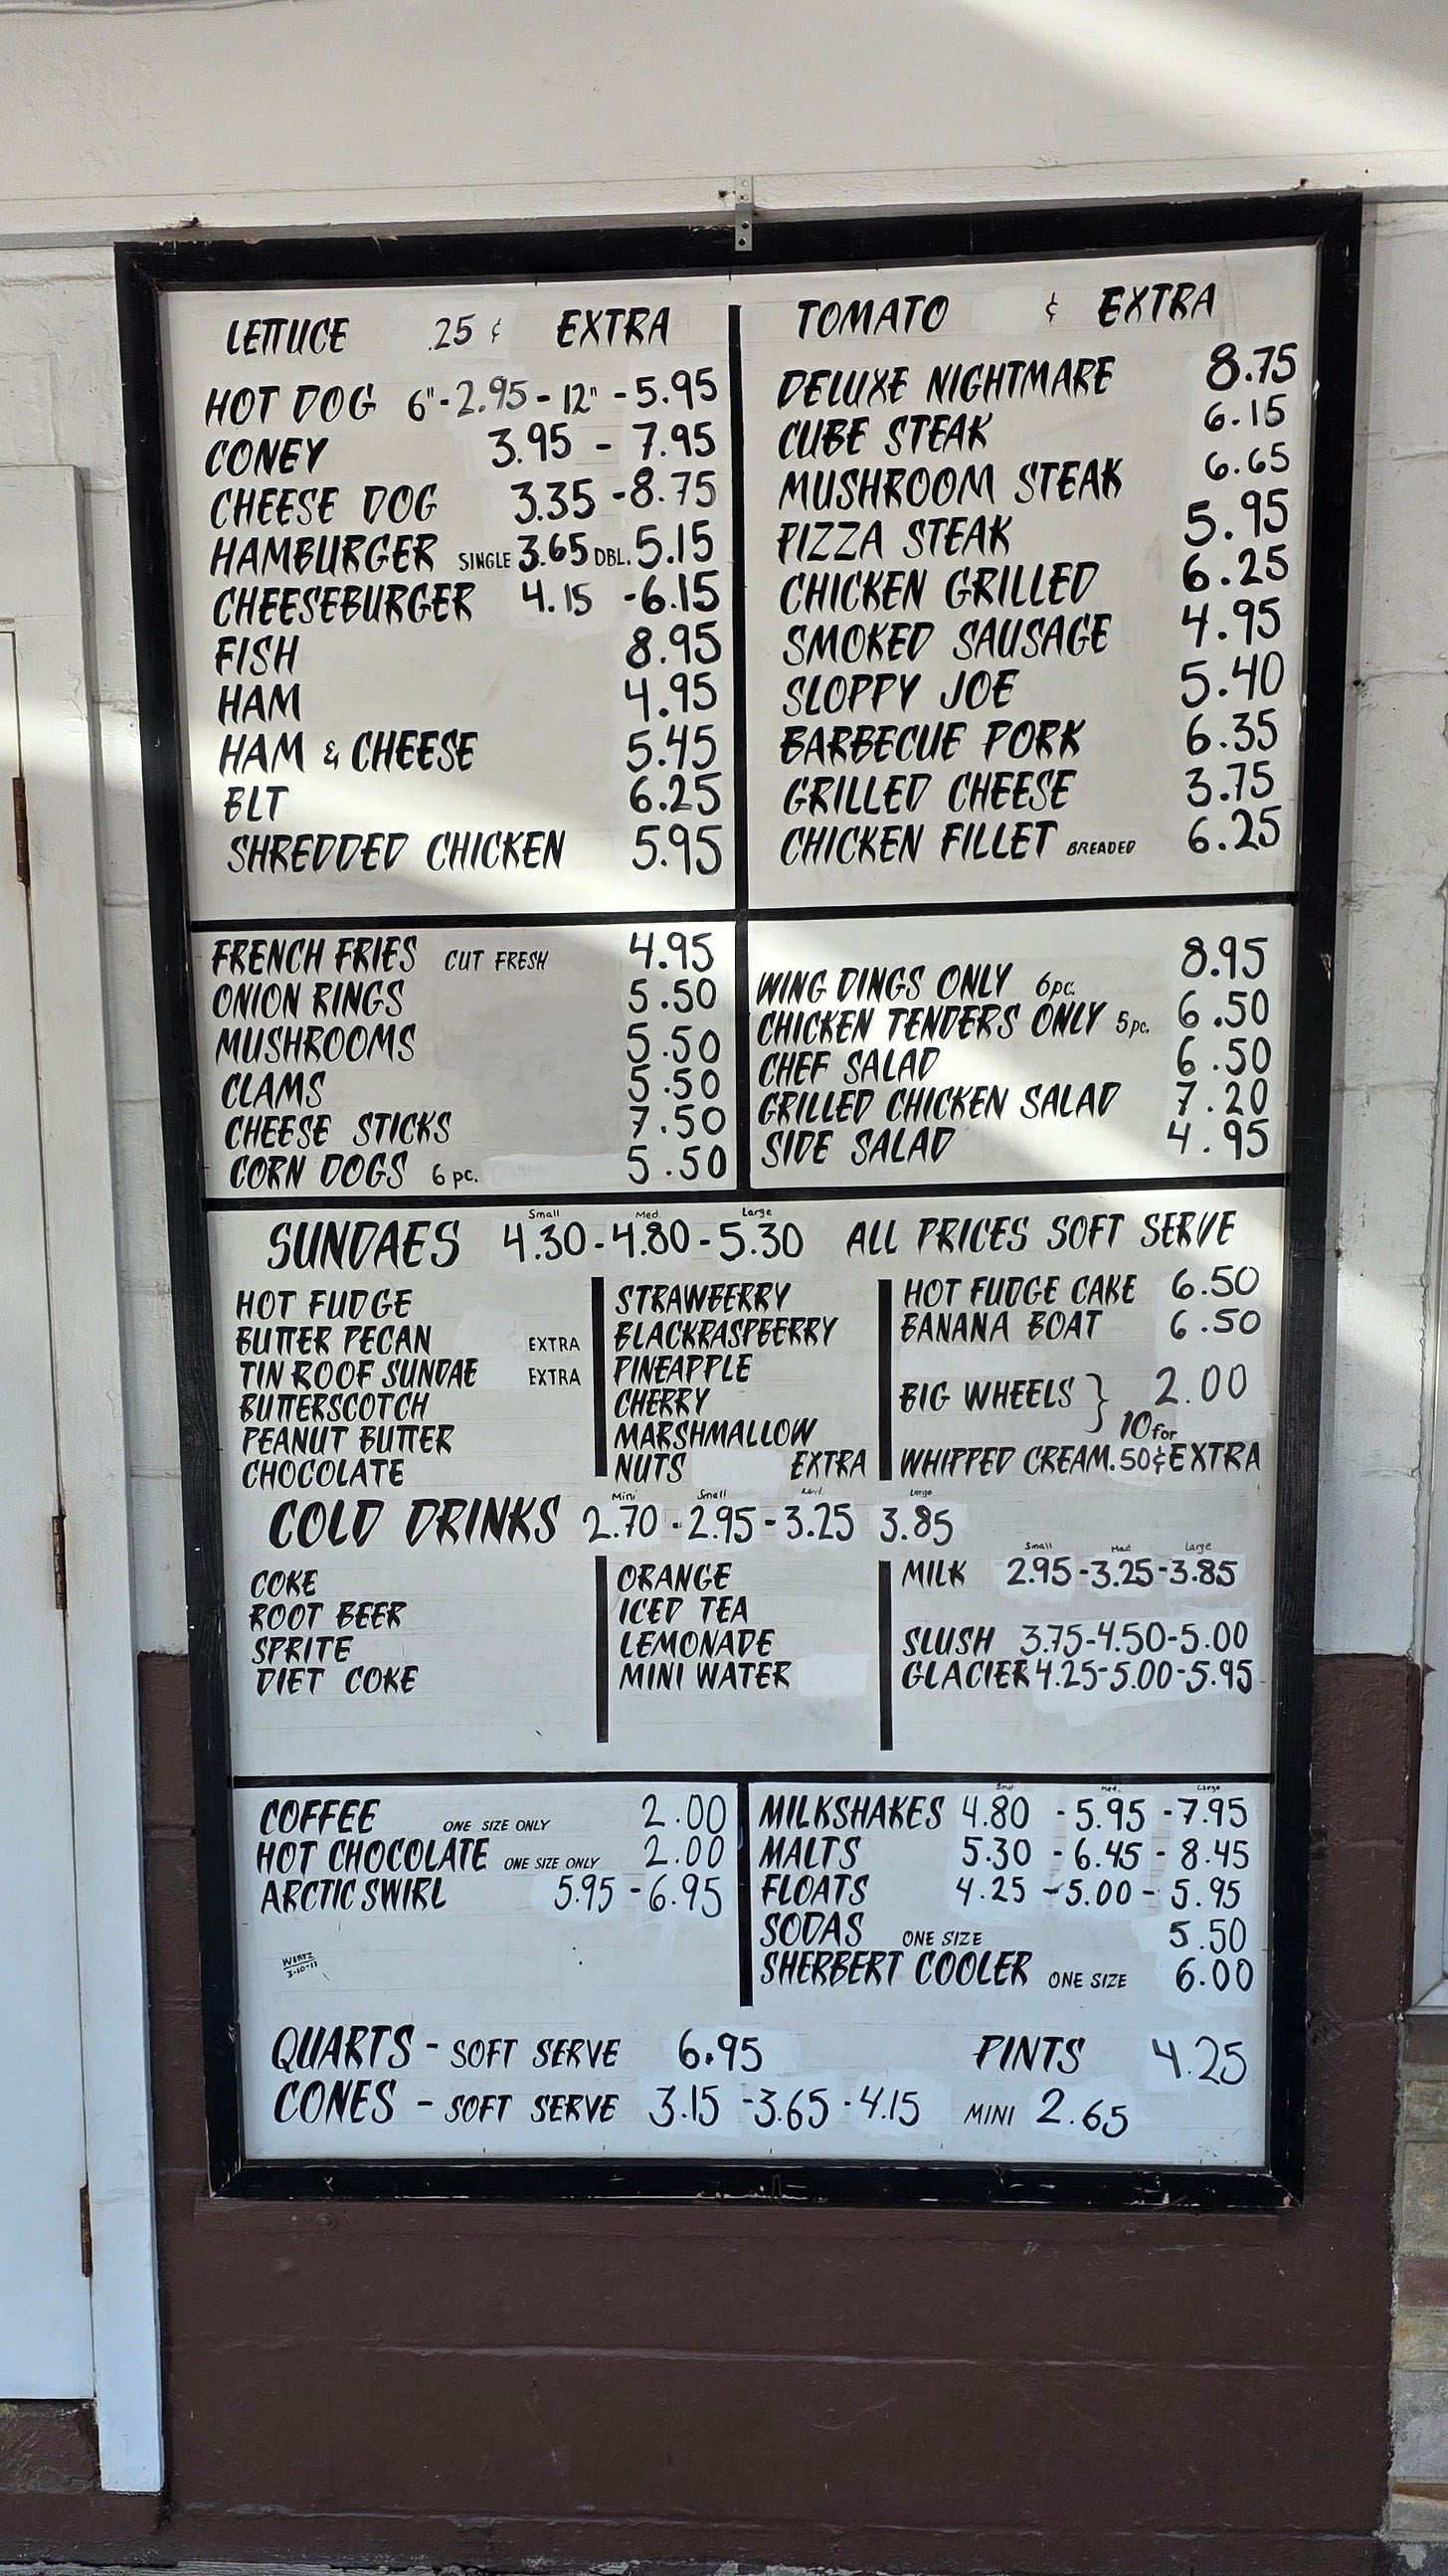 LETTUCE .25 ¢ EXTRA
HOT DOG 6"-2.95- 12" -5.95
CONEY 3.95 - 7.95
CHEESE DOG 3.35 -8.75
HAMBURGER SINGLE 3.65 DBL. 5.15
CHEESEBURGER 4.15 -6.15
FISH 8.95
HAM 4.95
HAM & CHEESE 5.45
BLT 6.25
SHREDDED CHICKEN 5.95
TOMATO ¢ EXTRA
DELUXE NIGHTMARE 8.75
CUBE STEAK 6.15
MUSHROOM STEAK 6.65
PIZZA STEAK 5.95
CHICKEN GRILLED 6.25
SMOKED SAUSAGE 4.95
SLOPPY JOE 5.40
BARBECUE PORK 6.35
GRILLED CHEESE 3.75
CHICKEN FILLET BREADED 6.25
FRENCH FRIES CUT FRESH 4.95
ONION RINGS 5.50
MUSHROOMS 5.50
CLAMS 5.50
CHEESE STICKS 7.50
CORN DOGS 6 pc. 5.50
WING DINGS ONLY 6pc. 8.95
CHICKEN TENDERS ONLY 5pc. 6.50
CHEF SALAD 6.50
GRILLED CHICKEN SALAD 7.20
SIDE SALAD 4.95
Small Med. Large
SUNDAES 4.30-4.80-5.30 ALL PRICES SOFT SERVE
HOT FUDGE
BUTTER PECAN EXTRA
TIN ROOF SUNDAE EXTRA
BUTTERSCOTCH
PEANUT BUTTER
CHOCOLATE
STRAWBERRY
BLACKRASPBERRY
PINEAPPLE
CHERRY
MARSHMALLOW
NUTS EXTRA
HOT FUDGE CAKE 6.50
BANANA BOAT 6.50
BIG WHEELS } 2.00
10 for
WHIPPED CREAM .50¢ EXTRA
Mini Small Med. Large
COLD DRINKS 2.70 - 2.95 - 3.25 3.85
COKE
ROOT BEER
SPRITE
DIET COKE
ORANGE
ICED TEA
LEMONADE
MINI WATER
Small Med. Large
MILK 2.95-3.25-3.85
SLUSH 3.75-4.50-5.00
GLACIER 4.25-5.00-5.95
COFFEE ONE SIZE ONLY 2.00
HOT CHOCOLATE ONE SIZE ONLY 2.00
ARCTIC SWIRL 5.95 -6.95
WERTZ
3-10-11
Med. Large
MILKSHAKES 4.80 - 5.95 - 7.95
MALTS 5.30 - 6.45 - 8.45
FLOATS 4.25 - 5.00 - 5.95
SODAS ONE SIZE 5.50
SHERBERT COOLER ONE SIZE 6.00
QUARTS - SOFT SERVE 6.95 PINTS 4.25
CONES - SOFT SERVE 3.15 -3.65 - 4.15 MINI 2.65